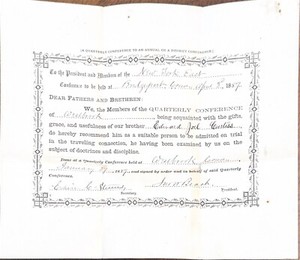 A QUARTERLY CONFERENCE TO AN ANNUAL OR A DISTRICT CONFERENCE
To the President and Members of the New York East
Conference to be held at Bridgeport, Conn, Apr. 1887
DEAR FATHERS AND BRETHREN:
We, the Members of the QUARTERLY CONFERENCE
of Westbrook, being acquainted with the gifts,
grace, and usefulness of our brother Edward Joel
do hereby recommend him as a suitable person to be admitted on trial
in the traveling connection, he having been examined by us on the
subject of doctrines and discipline.
Done at a Quarterly Conference held Westbrook Conn
January 1887 and signed by order and in behalf of said Quarterly
Conference.
Beach
Secretary. President.